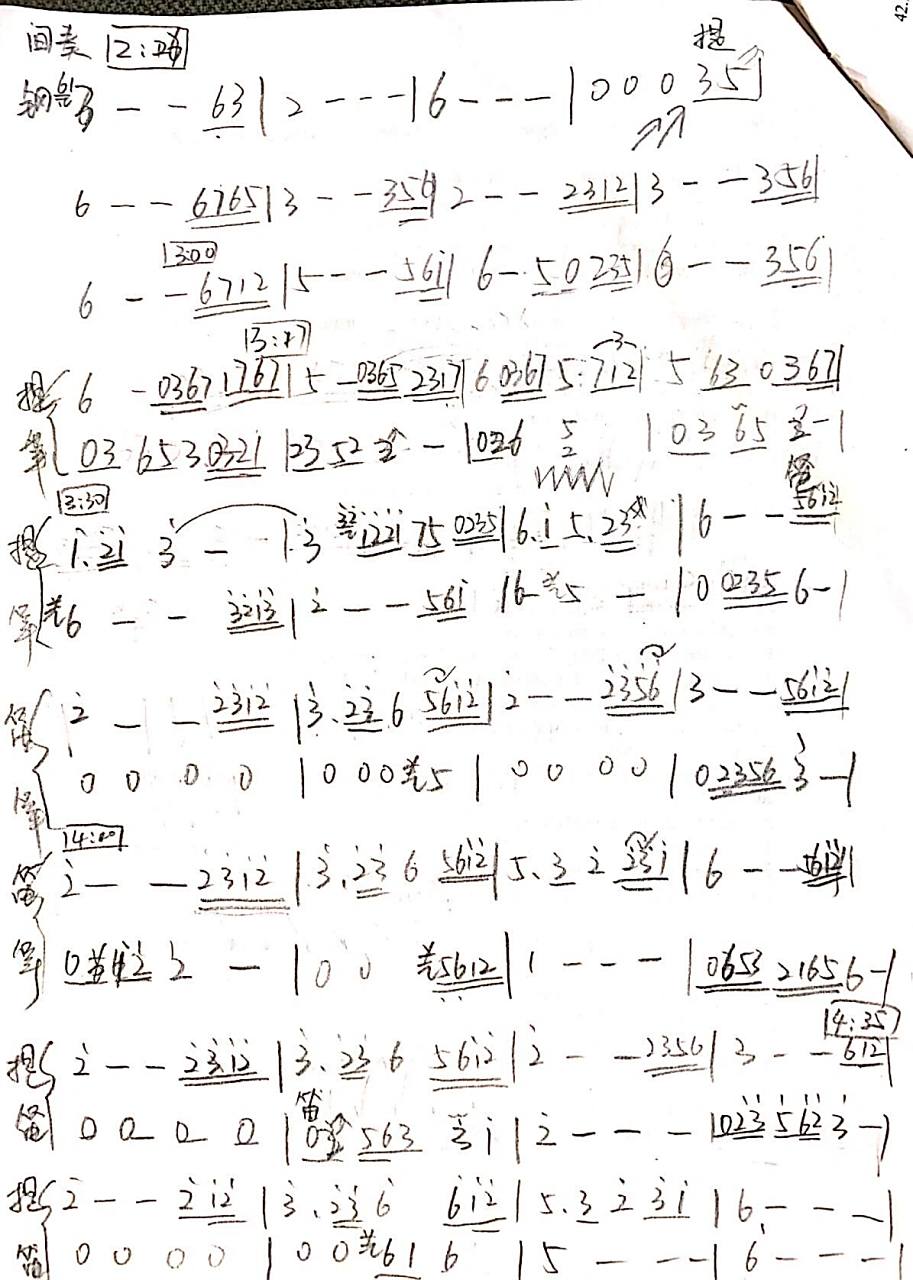 42.
间奏 2:26
提
钢 6 - - 63 | 2 - - - | 6 - - - | 0 0 0 35 |
6 - - 6765 | 3 - - 356 | 2 - - 2312 | 3 - - 356 |
3:00
6 - - 6712 | 5 - - 561 | 6 - 50 235 | 6 - - 356 |
3:17
提 6 - 0367 1767 | 5 - 0365 2317 | 6 0367 5·712 | 5 63 0367 |
筝 03 653 0321 | 23 52 - | 0 6 5 2 | 03 65 - |
3:30
笛
提 1.21 3 - - 1.3 1221 75 0235 | 6.1 5.23 | 6 - - 5612
筝 6 - - 3213 | 2 - - 561 | 6 5 - | 0 0235 6 - |
笛 2 - - 2312 | 3.23 6 5612 | 2 - - 2356 | 3 - - 5612 |
筝 0 0 0 0 | 0 0 0 5 | 0 0 0 0 | 02356 3 - |
4:00
笛 2 - - 2312 | 3.23 6 5612 | 5.3 2 231 | 6 - - 5612 |
筝 0 2 2 - | 0 0 5612 | 1 - - - | 0653 2165 6 - |
4:35
提 2 - - 2312 | 3.23 6 5612 | 2 - - 2356 | 3 - - 612 |
笛
笛 0 0 0 0 | 0 563 3 1 | 2 - - - | 023 562 3 - |
提 2 - - 2 12 | 3.23 6 612 | 5.3 2 31 | 6 - - - |
笛 0 0 0 0 | 0 0 61 6 | 5 - - - | 6 - - - |